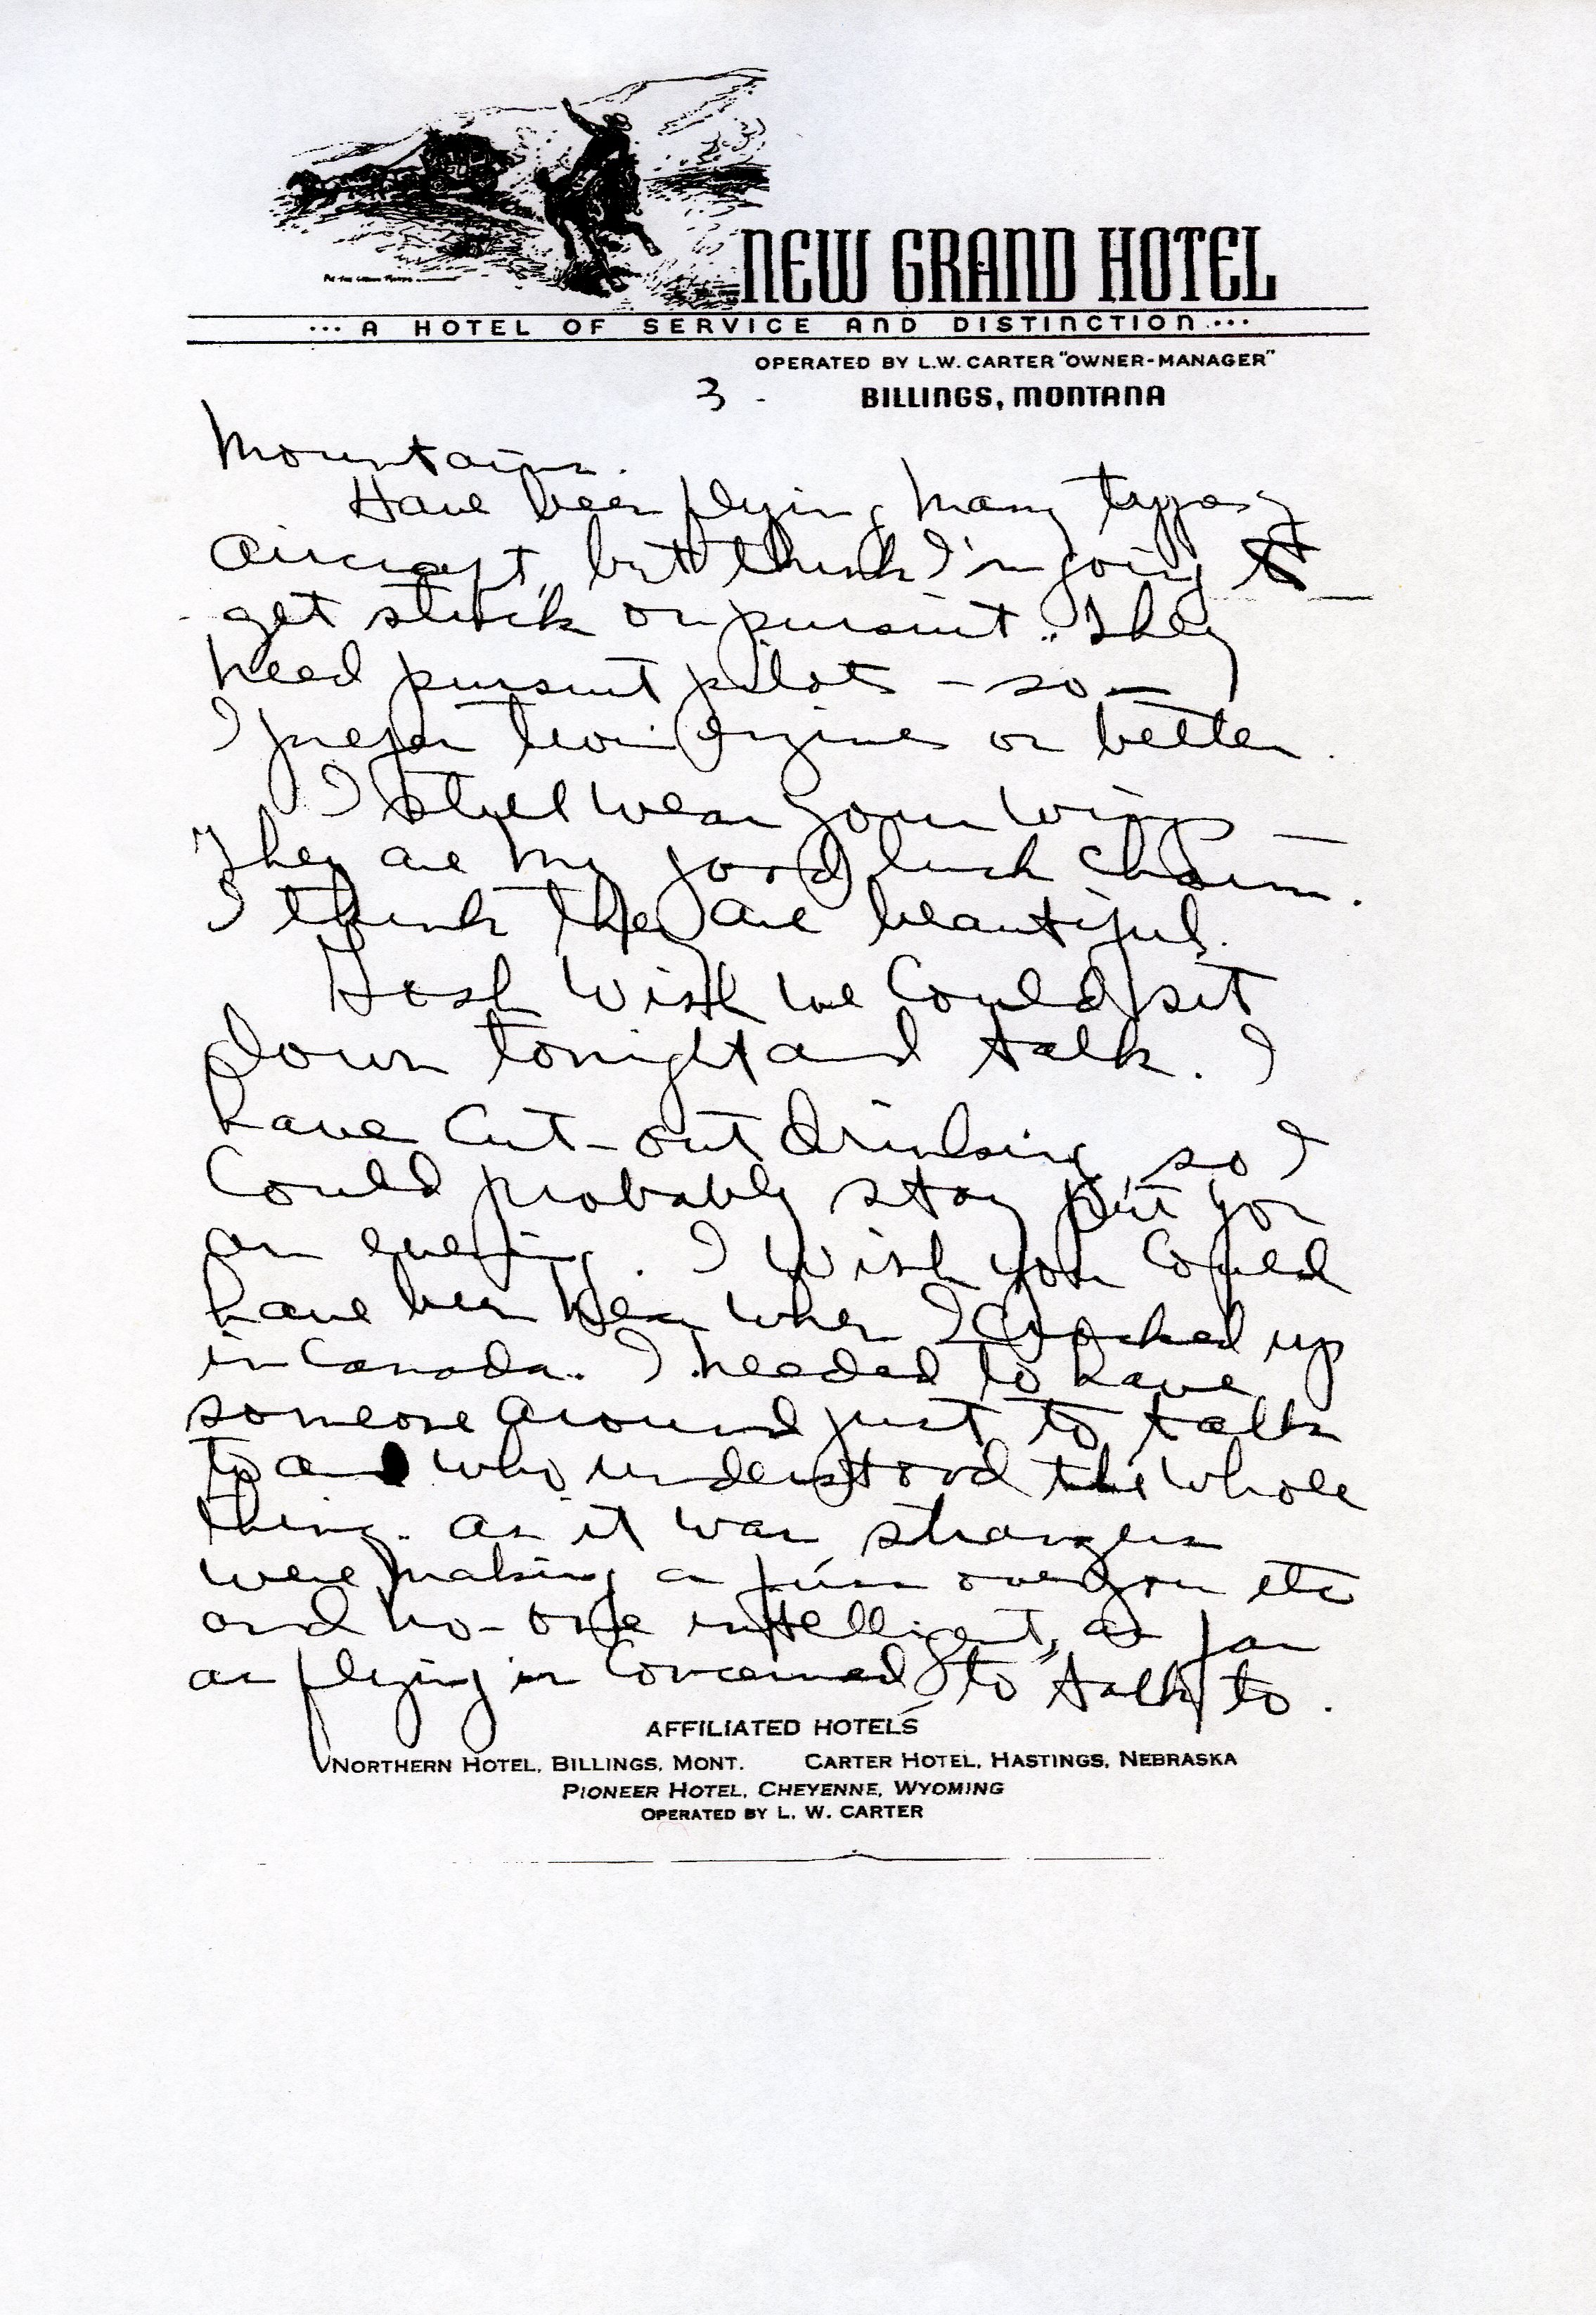 NEW GRAND HOTEL
... A HOTEL OF SERVICE AND DISTINCTION ...
OPERATED BY L.W. CARTER "OWNER-MANAGER"
BILLINGS, MONTANA
3 -
Mountains.
Have been flying many types
aircraft, but think I'm going to
get stuck on pursuit.. They
need pursuit pilots - so -
I prefer twin engines or better.
I still wear your wings -
They are my good luck charm.
I think they are beautiful.
Gosh wish we could sit
down tonight and talk. I
have cut-out drinking, so I
could probably stay put for
an evening. I wish you could
have been near when I cracked up
in Canada.. I needed to have
someone around just to talk
to and who understood the whole
thing. as it was strangers
were making a fuss over you etc
and no-one intelligent, as far
as flying is concerned, to talk to.
AFFILIATED HOTELS
NORTHERN HOTEL, BILLINGS, MONT. CARTER HOTEL, HASTINGS, NEBRASKA
PIONEER HOTEL, CHEYENNE, WYOMING
OPERATED BY L. W. CARTER